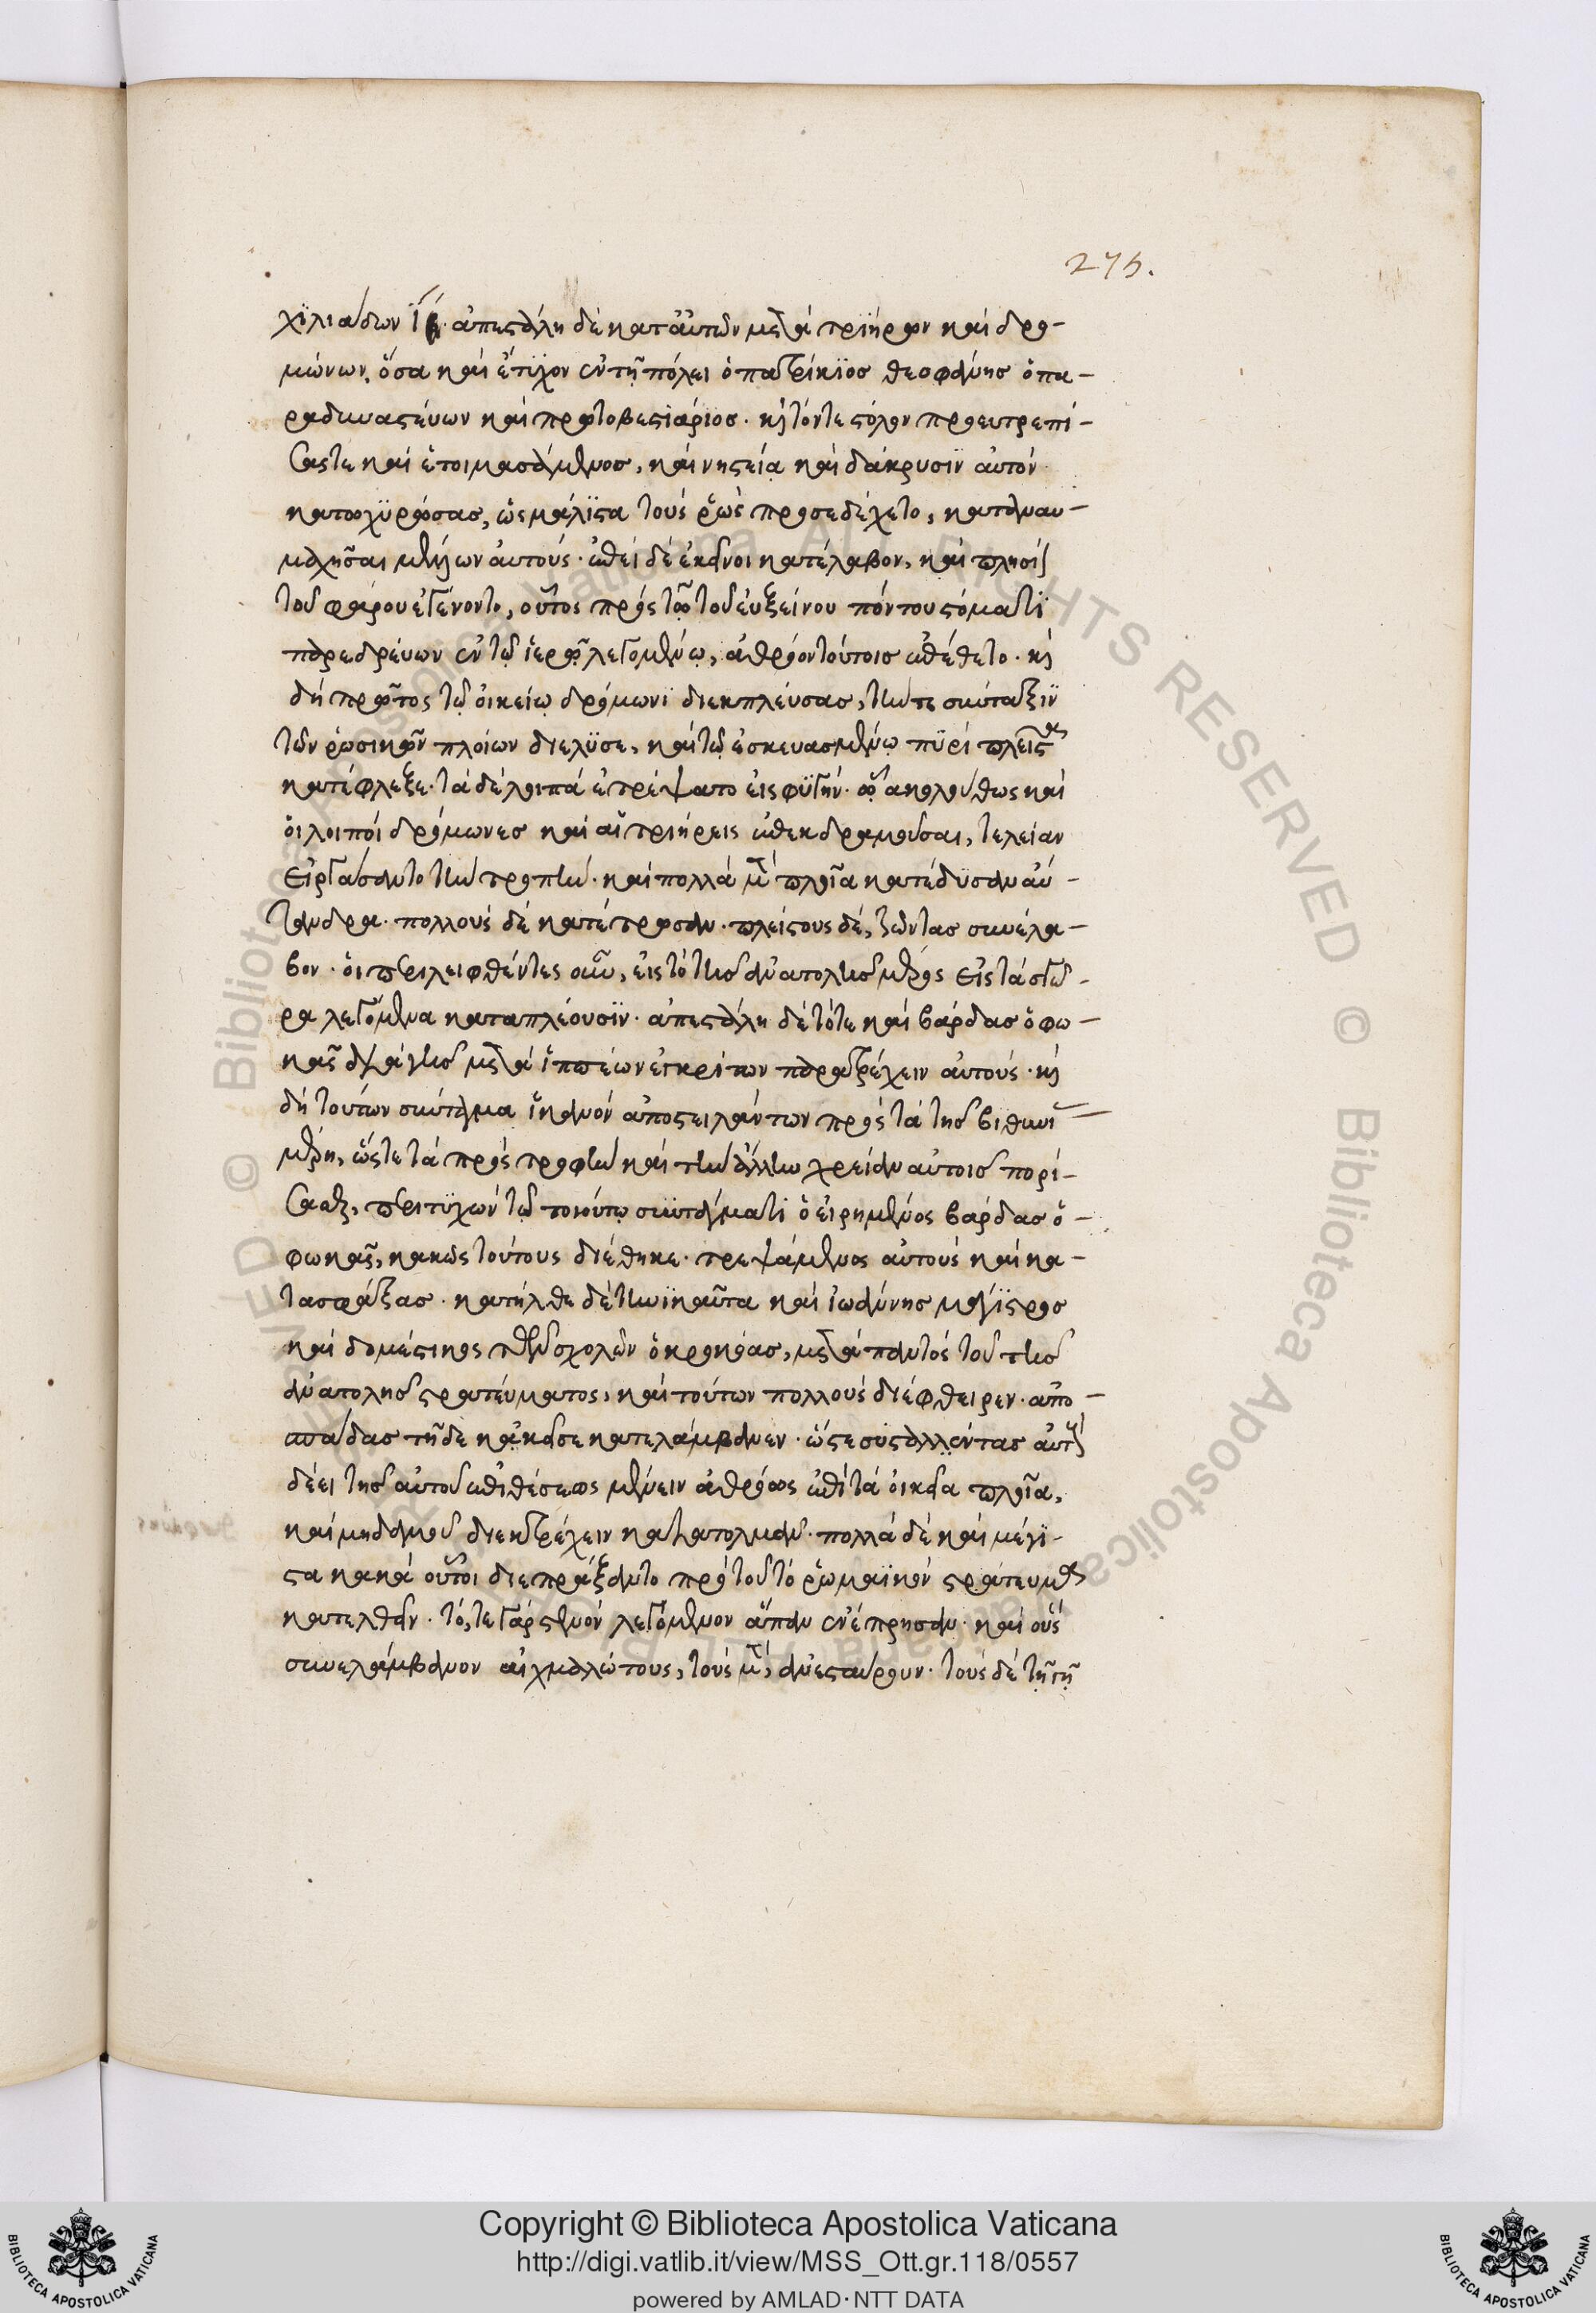 275.
χϊλιάδων ϊ. ἀπεστάλη δὲ κατ αὐτῶν μετὰ τριήρων καὶ δρο-
μώνων, ὅσα καὶ ἔτυχον ἐν τῆ πόλει ὁ πατρίκϊος θεοφάνης ὁ πα-
ραδυναστεύων καὶ πρωτοβεστιάριος. καὶ τόν τε στόλον προευτρεπί-
σας τε καὶ ἑτοιμασάμενος, καὶ νηστεία καὶ δάκρυσϊν αὐτὸν
κατοχϋρώσας, ὡς μάλϊστα τοὺς ῥῶς προσεδέχετο, καταναυ-
μαχῆσαι μέλλων αὐτούς. ἐπεὶ δὲ ἐκεῖνοι κατέλαβον, καὶ πλησίον
τοῦ φάρου ἐγένοντο, οὗτος πρὸς τῶ τοῦ εὐξείνου πόντου στόματι
παρεδρεύων ἐν τῷ ἱερῷ λεγομένῳ, ἀθρόον τούτοις ἐπέθετο. καὶ
δὴ πρῶτος τῷ οἰκείῳ δρόμωνι διεκπλεύσας, τήν τε σύνταξϊν
τῶν ῥωσικῶν πλοίων διέλϋσε, καὶ τῷ ἐσκευασμένῳ πϋρὶ πλεῖστα
κατέφλεξε. τὰ δὲ λοιπὰ ἐτρέψατο εἰς φϋγήν. ᾧ ἀκολούθως καὶ
οἱ λοιποὶ δρόμωνες καὶ αἱ τριήρεις ἐπεκδραμοῦσαι, τελείαν
εἰργάσαντο τὴν τροπήν. καὶ πολλὰ μὲν πλοῖα κατέδϋσαν αὐ-
τανδρα. πολλοὺς δὲ κατέτρωσαν. πλείστους δὲ, ζῶντας συνέλα-
βον. οἱ περιλειφθέντες οὖν, εἰς τὸ τῆς ἀνατολῆς μέρος εἰς τὰ σγῶ-
ρα λεγόμενα καταπλέουσϊν. ἀπεστάλη δὲ τότε καὶ βάρδας ὁ φω-
κᾶς διὰ γῆς μετὰ ἱππέων ἐγκρίτων παρατρέχειν αὐτούς. καὶ
δὴ τούτων σύνταγμα ἱκανὸν ἀποστειλάντων πρὸς τὰ τῆς βιθυνίας
μέρη, ὥστε τὰ πρὸς τροφὴν καὶ τὴν ἄλλην χρείαν αὐτοῖς πορί-
σασθαι, περιτϋχὼν τῷ τοιούτῳ συντάγματι ὁ εἰρημένος βάρδας ὁ
φωκᾶς, κακῶς τούτους διέθηκε. τρεψάμενος αὐτοὺς καὶ κα-
τασφάξας. κατῆλθε δὲ τηνϊκαῦτα καὶ ἰωάννης μάγϊστρος
καὶ δομέστικος τῶν σχολῶν ὁ κροκόας, μετὰ παντὸς τοῦ τῆς
ἀνατολῆς στρατεύματος, καὶ τούτων πολλοὺς διέφθειρεν. ἀπο-
σπάδας τῆδε κἀκεῖσε κατελάμβανεν. ὥστε συσταλέντας αὐτοὺς
δέει τῆς αὐτοῦ ἐπιθέσεως μένειν ἀθρόως ἐπὶ τὰ οἰκεῖα πλοῖα,
καὶ μηδαμοῦ διεκτρέχειν κατατολμᾶν. πολλὰ δὲ καὶ μέγϊ-
στα κακὰ οὗτοι διεπράξαντο πρὸ τοῦ τὸ ῥωμαϊκὸν στράτευμα
κατελθεῖν. τό, τε γὰρ στενὸν λεγόμενον ἅπαν ἐνέπρησαν. καὶ οὓς
συνελάμβανον αἰχμαλώτους, τοὺς μὲν, ἀνεσταύρουν. τοὺς δὲ τῇ γῇ
Copyright © Biblioteca Apostolica Vaticana
http://digi.vatlib.it/view/MSS_Ott.gr.118/0557
powered by AMLAD·NTT DATA